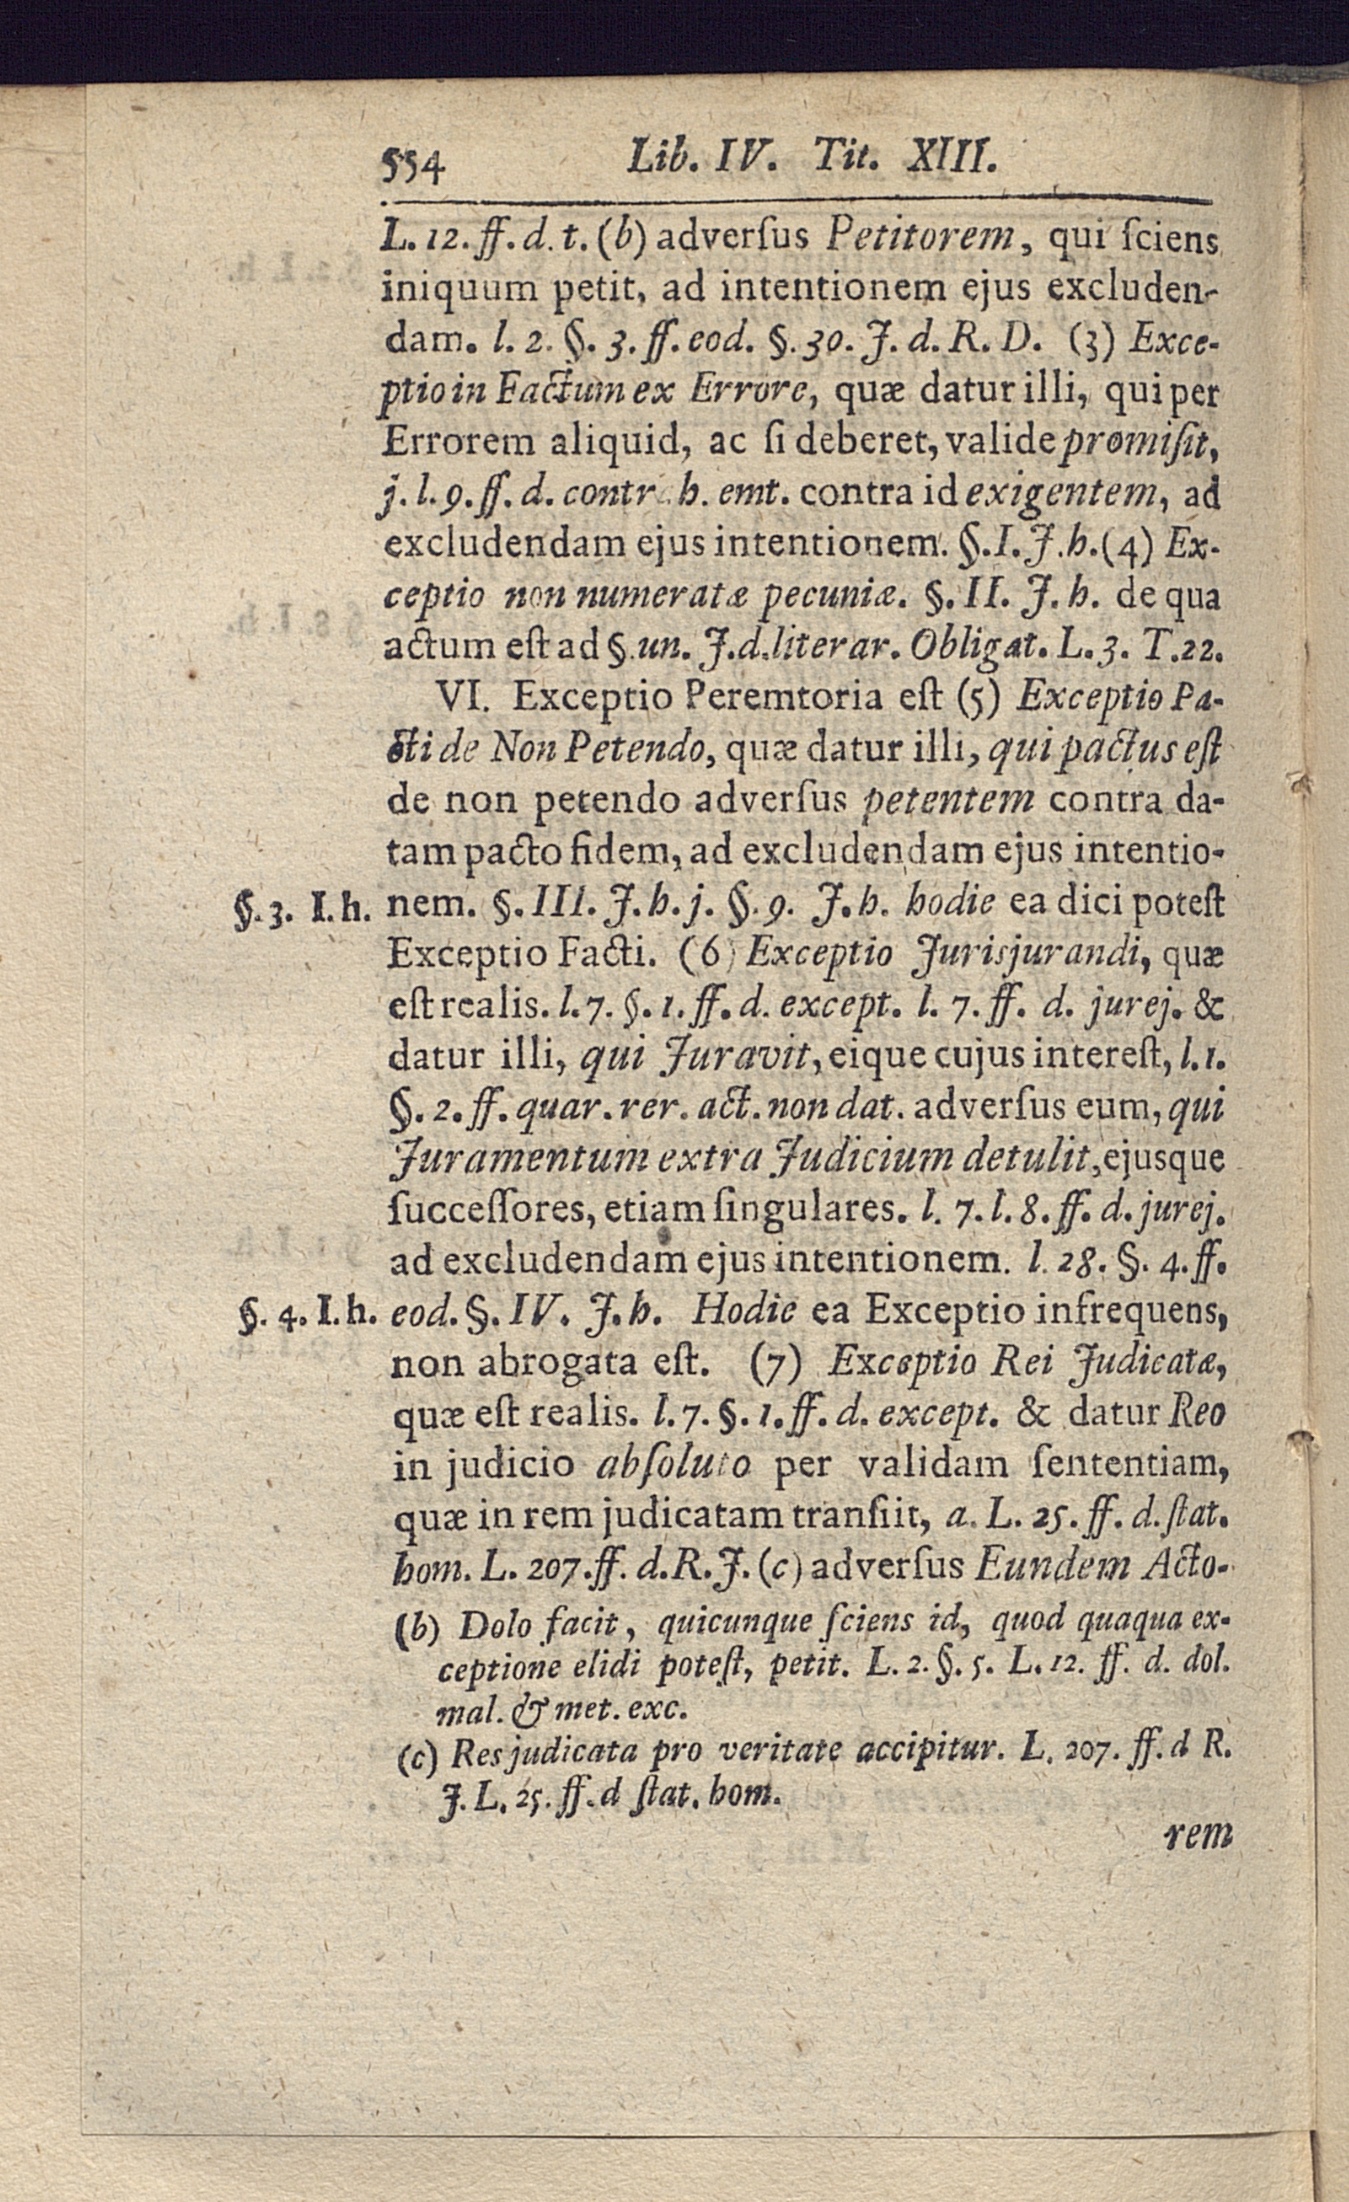 554 Lib. IV. Tit. XIII.
L. 12. ff. d. t. (b) adverſus Petitorem, qui ſciens
iniquum petit, ad intentionem ejus excluden-
dam. l. 2. §. 3. ff. eod. §. 30. J. d. R. D. (3) Exce-
ptio in Factum ex Errore, quæ datur illi, qui per
Errorem aliquid, ac ſi deberet, valide promiſit,
j. l. 9. ff. d. contr. h. emt. contra id exigentem, ad
excludendam ejus intentionem. §. I. J. h. (4) Ex-
ceptio non numeratæ pecuniæ. §. II. J. h. de qua
actum eſt ad §. un. J. d. literar. Obligat. L. 3. T. 22.
VI. Exceptio Peremtoria eſt (5) Exceptio Pa-
cti de Non Petendo, quæ datur illi, qui pactus eſt
de non petendo adverſus petentem contra da-
tam pacto fidem, ad excludendam ejus intentio-
§. 3. I. h. nem. §. III. J. h. j. §. 9. J. h. hodie ea dici poteſt
Exceptio Facti. (6) Exceptio Jurisjurandi, quæ
eſt realis. l. 7. §. 1. ff. d. except. l. 7. ff. d. jurej. &
datur illi, qui Juravit, eique cujus intereſt, l. 1.
§. 2. ff. quar. rer. act. non dat. adverſus eum, qui
Juramentum extra Judicium detulit, ejusque
ſucceſſores, etiam ſingulares. l. 7. l. 8. ff. d. jurej.
ad excludendam ejus intentionem. l. 28. §. 4. ff.
§. 4. I. h. eod. §. IV. J. h. Hodie ea Exceptio infrequens,
non abrogata eſt. (7) Exceptio Rei Judicatæ,
quæ eſt realis. l. 7. §. 1. ff. d. except. & datur Reo
in judicio abſoluto per validam ſententiam,
quæ in rem judicatam tranſiit, a. L. 25. ff. d. ſtat.
hom. L. 207. ff. d. R. J. (c) adverſus Eundem Acto-
(b) Dolo facit, quicunque ſciens id, quod quaqua ex-
ceptione elidi poteſt, petit. L. 2. §. 5. L. 12. ff. d. dol.
mal. & met. exc.
(c) Res judicata pro veritate accipitur. L. 207. ff. d R.
J. L. 25. ff. d ſtat. hom.
rem